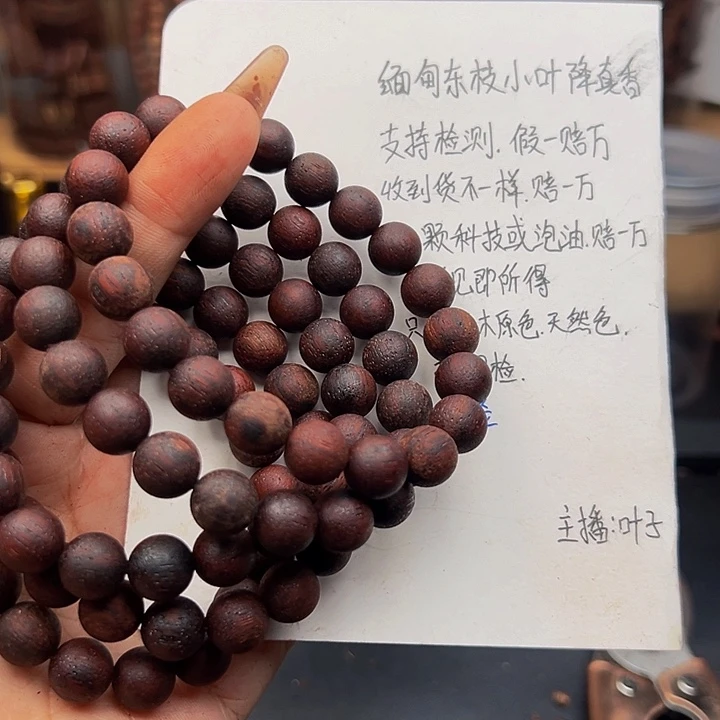 缅甸东枝小叶降真香
支持检测.假一赔万
收到货不一样.赔一万
颗科技或泡油.赔一万
见即所得
只 木原色.天然色.
检.
主播:叶子